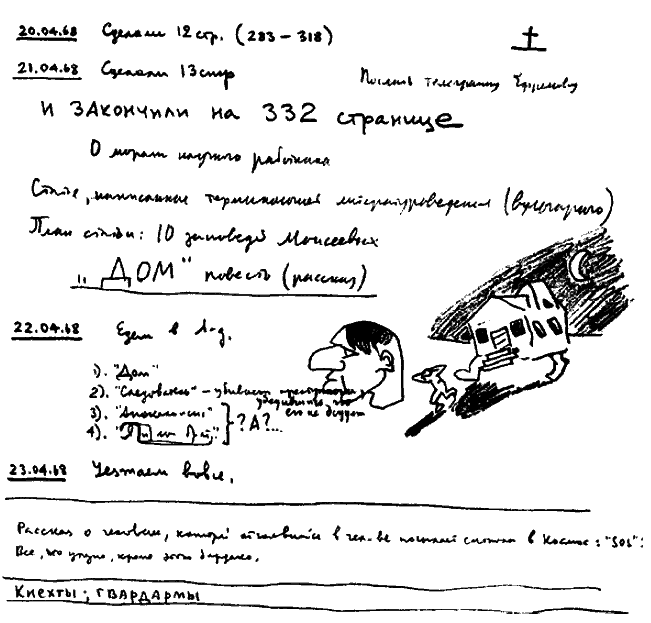 20.04.68 Сделали 12 стр. (283 – 318)
21.04.68 Сделали 13 стр
Послать телеграмму Ефремову
И ЗАКОНЧИЛИ на 332 странице
О морали научного работника
Статья, написанная терминологией литературоведения (вульгарного)
План статьи: 10 заповедей Моисеевых
„ДОМ" повесть (рассказ)
22.04.68 Едем в Л-д.
1). "Дом"
2). "Следователь" – убивает преступника, убедившись, что его не осудят
3). "Апокалипсис"
4).
}?А?...
23.04.68 Уезжаем вовсе.
Рассказ о человеке, который отчаявшись в чел-ве посылает сигналы в Космос: "SOS":
Все, что угодно, кроме этого
Кнехты; ГВАРДАРМЫ